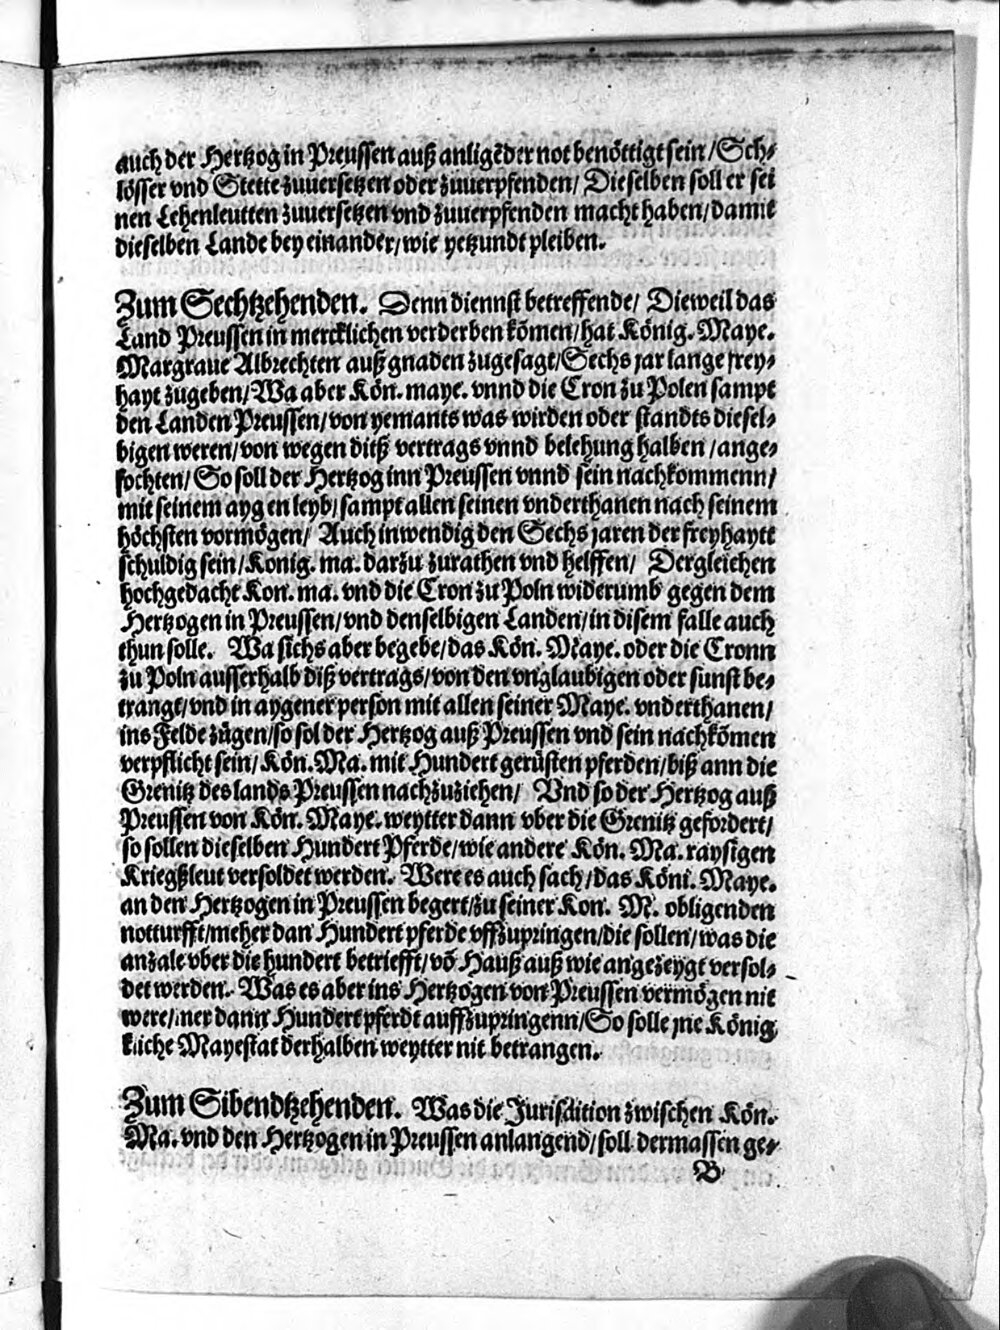 auch der Hertzog in Preussen auß anligēder not benöttigt sein / Sch⸗
lösser vnd Stette zuuersetzen oder zuuerpfenden / Dieselben soll er sei
nen Lehenleutten zuuersetzen vnd zuuerpfenden macht haben / damit
dieselben Lande bey einander / wie yetzundt pleiben.
Zum Sechtzehenden. Denn diennst betreffende / Dieweil das
Land Preussen in mercklichen verderben kōmen / hat König. Maye.
Margraue Albrechten auß gnaden zugesagt / Sechs jar lange frey⸗
hayt zugeben / Wa aber Kön. maye. vnnd die Cron zu Polen sampt
den Landen Preussen / von yemants was wirden oder standts diesel⸗
bigen weren / von wegen ditß vertrags vnnd belehung halben / ange⸗
fochten / So soll der Hertzog inn Preussen vnnd sein nachkommenn /
mit seinem aygen leyb / sampt allen seinen vnderthanen nach seinem
höchsten vormögen / Auch inwendig den Sechs jaren der freyhaytt
schuldig sein / Konig. ma. darzu zurathen vnd helffen / Dergleichen
hochgedacht Kon. ma. vnd die Cron zu Poln widerumb gegen dem
Hertzogen in Preussen / vnd denselbigen Landen / in disem falle auch
thun solle. Wa sichs aber begebe / das Kön. Maye. oder die Cronn
zu Poln ausserhalb diß vertrags / von den vnglaubigen oder sunst be⸗
trangt / vnd in aygener person mit allen seiner Maye. vnderthanen /
ins Felde zügen / so sol der Hertzog auß Preussen vnd sein nachkōmen
verpflicht sein / Kön. Ma. mit Hundert gerüsten pferden / biß ann die
Grenitz des lands Preussen nachzuziehen / Vnd so der Hertzog auß
Preussen von Kön. Maye. weytter dann vber die Grenitz gefordert /
so sollen dieselben Hundert Pferde / wie andere Kön. Ma. raysigen
Kriegßleut versoldet werden. Were es auch sach / das Köni. Maye.
an den Hertzogen in Preussen begert / zu seiner Kon. M. obligenden
notturfft / meher dan Hundert pferde vffzupringen / die sollen / was die
anzale vber die hundert betriefft / vō Hauß auß wie angezeygt versol⸗
det werden. Was es aber ins Hertzogen von Preussen vermögen nit
were / mer dann Hundert pferdt auffzupringenn / So solle jne König
kliche Mayestat derhalben weytter nit betrangen.
Zum Sibendtzehenden. Was die Jurisdition zwischen Kön.
Ma. vnd den Hertzogen in Preussen anlangend / soll dermassen ge⸗
B